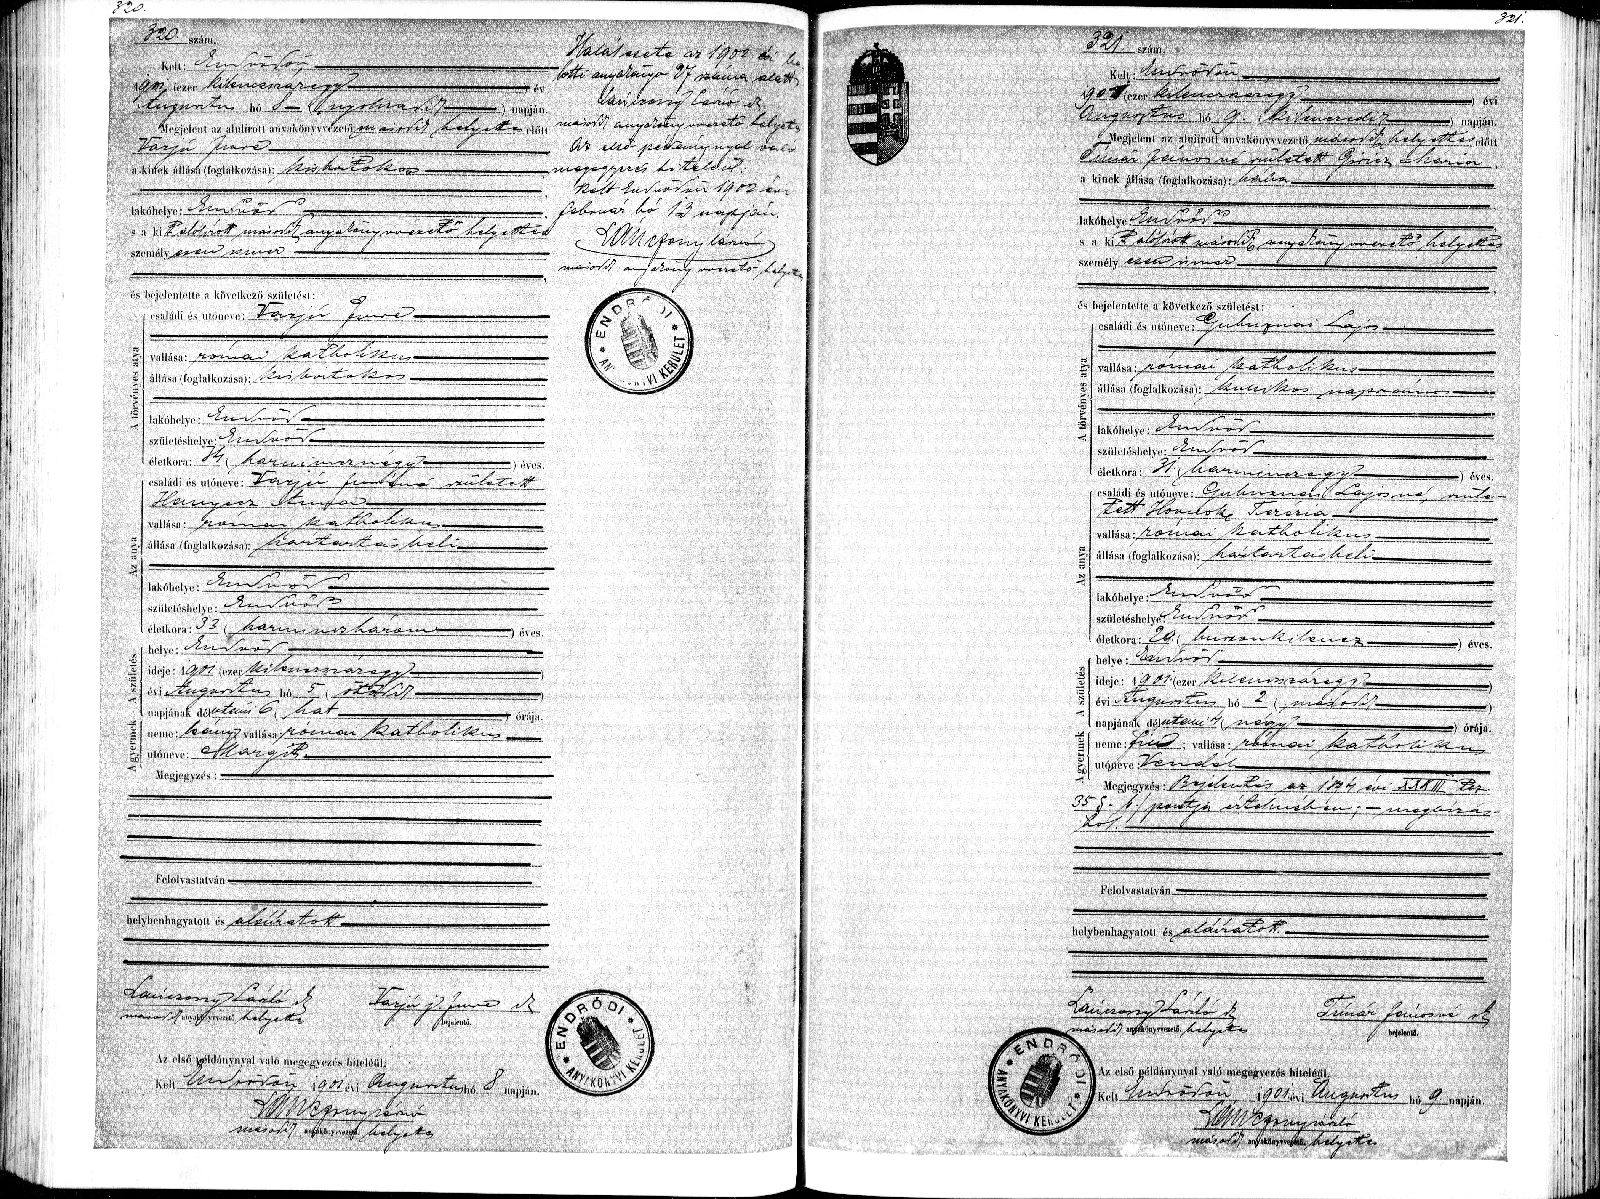 320.
320 szám.
Kelt: Endrődön
1901 (ezer kilenczszázegy) év
Augusztus hó 8 (nyolczadik) napján.
Megjelent az alulirott anyakönyvvezető második helyettes előtt
Varjú Imre
a kinek állása (foglalkozása): kisbirtokos
lakóhelye: Endrőd
s a kit alólirott második anyakönyvvezető helyettes
személyesen ismer
és bejelentette a következő születést:
A törvényes atya
családi és utóneve: Varjú Imre
vallása: római katholikus
állása (foglalkozása): kisbirtokos
lakóhelye: Endrőd
születéshelye: Endrőd
életkora: 34 (harmincznégy) éves.
Az anya
családi és utóneve: Varjú Imréné született
Hanyecz
vallása: római katholikus
állása (foglalkozása): háztartásbeli
lakóhelye: Endrőd
születéshelye: Endrőd
életkora: 33 (harminczhárom) éves.
A születés
helye: Endrőd
ideje: 1901 (ezer kilenczszázegy)
évi Augusztus hó 5 (ötödik)
napjának délutáni 6 (hat) órája.
A gyermek
neme: leány; vallása: római katholikus
utóneve: Margit
Megjegyzés:
Felolvastatván
helybenhagyatott és aláíratott
Lanczony László sk Varjú j. Imre sk
második anyakönyvvezető helyettes bejelentő.
Az első példánynyal való megegyezés hiteléül.
Kelt Endrődön, 1901 évi Augusztus hó 8 napján.
Lanczony László
második anyakönyvvezető helyettes
Halálesete az 1902 évi ha-
lotti anyakönyv 27 száma alatt.
Lanczony László sk
második anyakönyvvezető helyettes
Az első példánynyal való
megegyezés hiteléül.
Kelt Endrődön 1902 évi
február hó 13 napján.
Lanczony László
második anyakönyvvezető helyettes
ENDRŐDI ANYAKÖNYVI KERÜLET
ENDRŐDI ANYAKÖNYVI KERÜLET
321.
321 szám.
Kelt: Endrődön
1901 (ezer kilenczszázegy) évi
Augusztus hó 9 (kilenczedik) napján.
Megjelent az alulirott anyakönyvvezető második helyettes előtt
Tímár Jánosné született Mária
a kinek állása (foglalkozása): bába
lakóhelye: Endrőd
s a kit alólirott második anyakönyvvezető helyettes
személyesen ismer
és bejelentette a következő születést:
A törvényes atya
családi és utóneve: Gubuznai Lajos
vallása: római katholikus
állása (foglalkozása): kubikos napszámos
lakóhelye: Endrőd
születéshelye: Endrőd
életkora: 31 (harminczegy) éves.
Az anya
családi és utóneve: Gubuznai Lajosné, szüle-
tett Hornok Terézia
vallása: római katholikus
állása (foglalkozása): háztartásbeli
lakóhelye: Endrőd
születéshelye: Endrőd
életkora: 29 (huszonkilencz) éves.
A születés
helye: Endrőd
ideje: 1901 (ezer kilenczszázegy)
évi Augusztus hó 2 (második)
napjának délutáni 4 (négy) órája.
A gyermek
neme: fiú; vallása: római katholikus
utóneve: Vendel
Megjegyzés: Bejelentés az 1894 évi XXXIII tcz
35 § b/ pontja értelmében; – megbízás-
ból.
Felolvastatván
helybenhagyatott és aláíratott
Lanczony László sk Tímár Jánosné sk
második anyakönyvvezető helyettes bejelentő.
Az első példánynyal való megegyezés hiteléül.
Kelt Endrődön, 1901 évi Augusztus hó 9 napján.
Lanczony László
második anyakönyvvezető helyettes
ENDRŐDI ANYAKÖNYVI KERÜLET